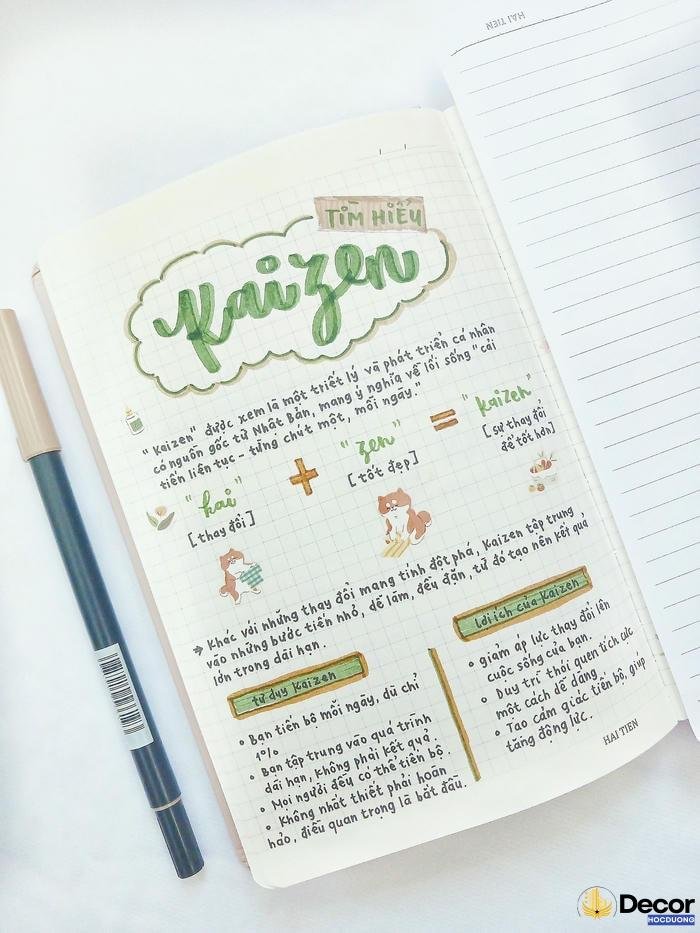 HẢI TIẾN
TÌM HIỂU
Kaizen
"Kaizen" được xem là một triết lý và phát triển cá nhân
có nguồn gốc từ Nhật Bản, mang ý nghĩa về lối sống "cải
tiến liên tục - từng chút một, mỗi ngày."
"kai" + "zen" = "kaizen"
[thay đổi] [tốt đẹp] [sự thay đổi
để tốt hơn]
→ Khác với những thay đổi mang tính đột phá, Kaizen tập trung
vào những bước tiến nhỏ, dễ làm, đều đặn, từ đó tạo nên kết quả
lớn trong dài hạn.
tư duy Kaizen
• Bạn tiến bộ mỗi ngày, dù chỉ
1%
• Bạn tập trung vào quá trình
dài hạn, không phải kết quả.
• Mọi người đều có thể tiến bộ.
• Không nhất thiết phải hoàn
hảo, điều quan trọng là bắt đầu.
Lợi ích của Kaizen
• giảm áp lực thay đổi lên
cuộc sống của bạn.
• Duy trì thói quen tích cực
một cách dễ dàng.
• Tạo cảm giác tiến bộ, giúp
tăng động lực.
HẢI TIẾN
Decor
HOCDUONG